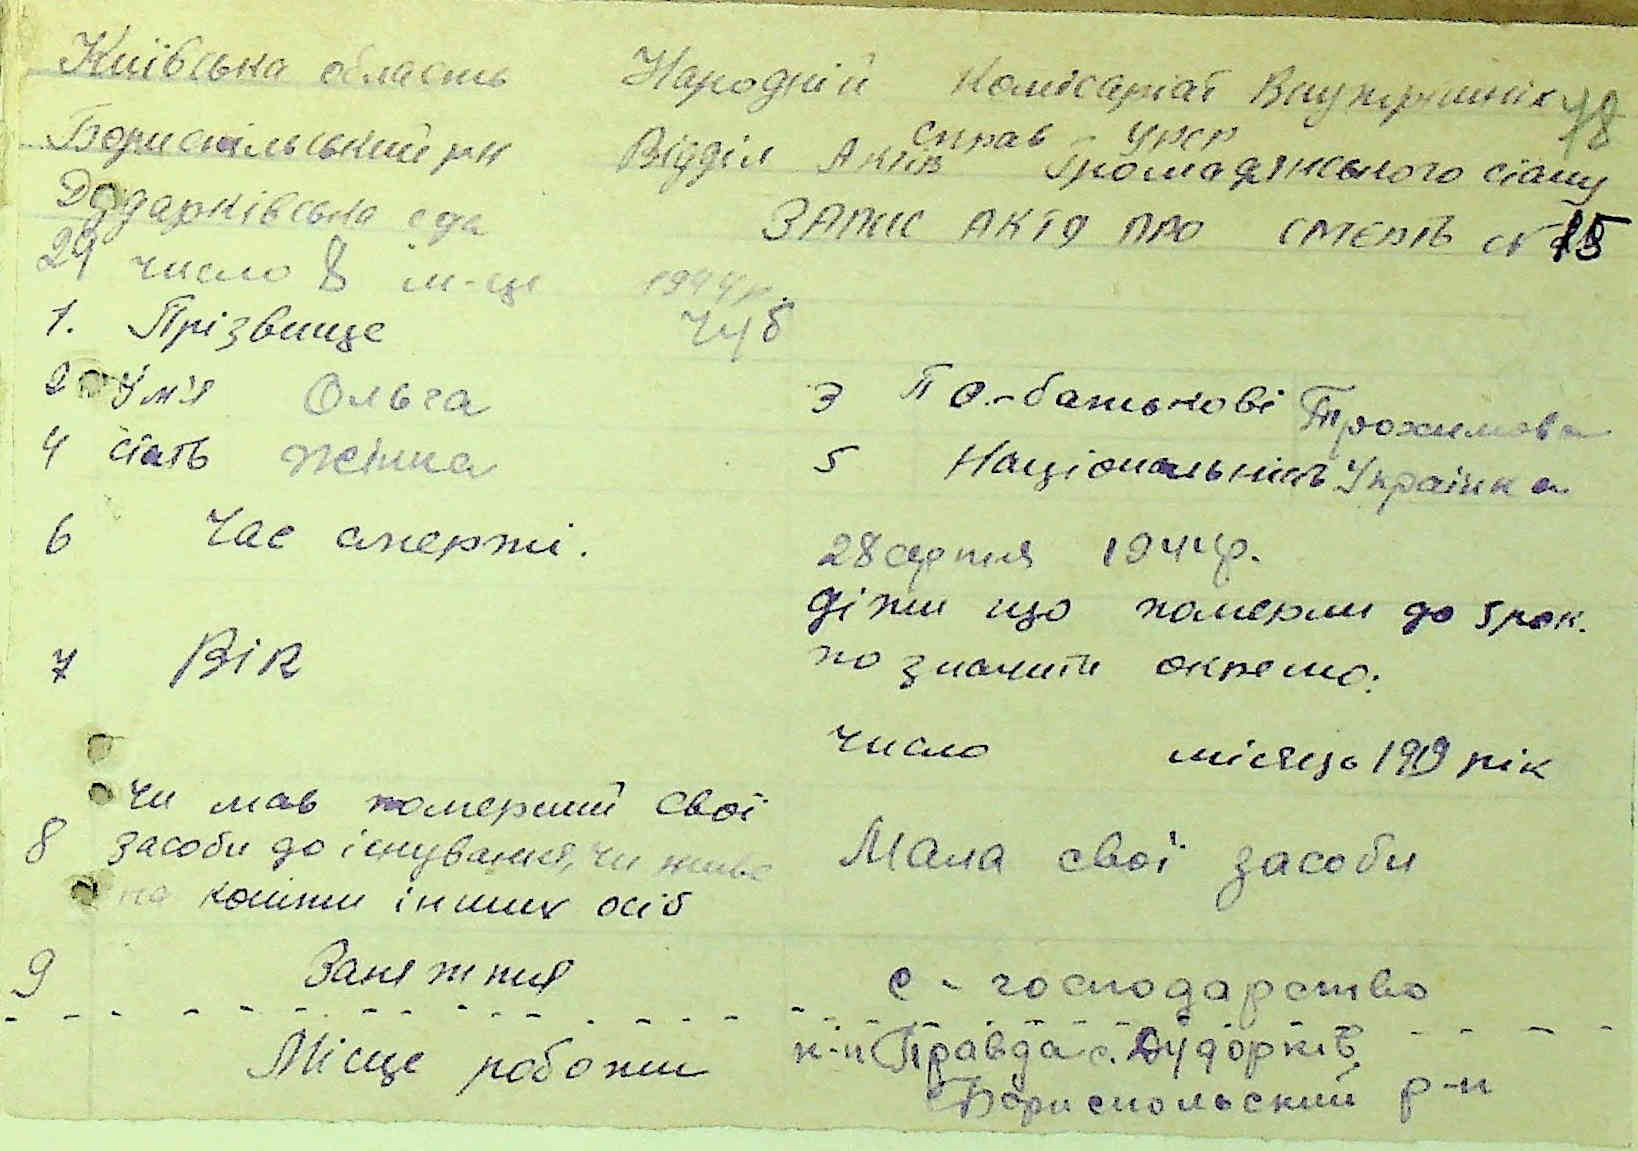 Київська область Народній Комісаріат Внутрішніх 18
Справ - УРСР
Бориспільський рн Відділ Актів Громадянського стану
Дударківська с/да ЗАПИС АКТА ПРО СМЕРТЬ № 15
29 число 8 м-це 1944 р.
1. Прізвище Чуб
2 Ум'я Ольга 3 По-батькові Трохимовна
4 стать жінка 5 Національність Українка
6 Час смерті. 28 серпня 1944р.
діти що померли до 5 рок.
7 Вік позначити окремо:
число місяць 19 рік
чи мав померший свої
8 засоби до існування, чи живе Мала свої засоби
на кошти інших осіб
9 Заняття с-господарство
Місце роботи к-п Правда с. Дударків
Бориспольский р-н